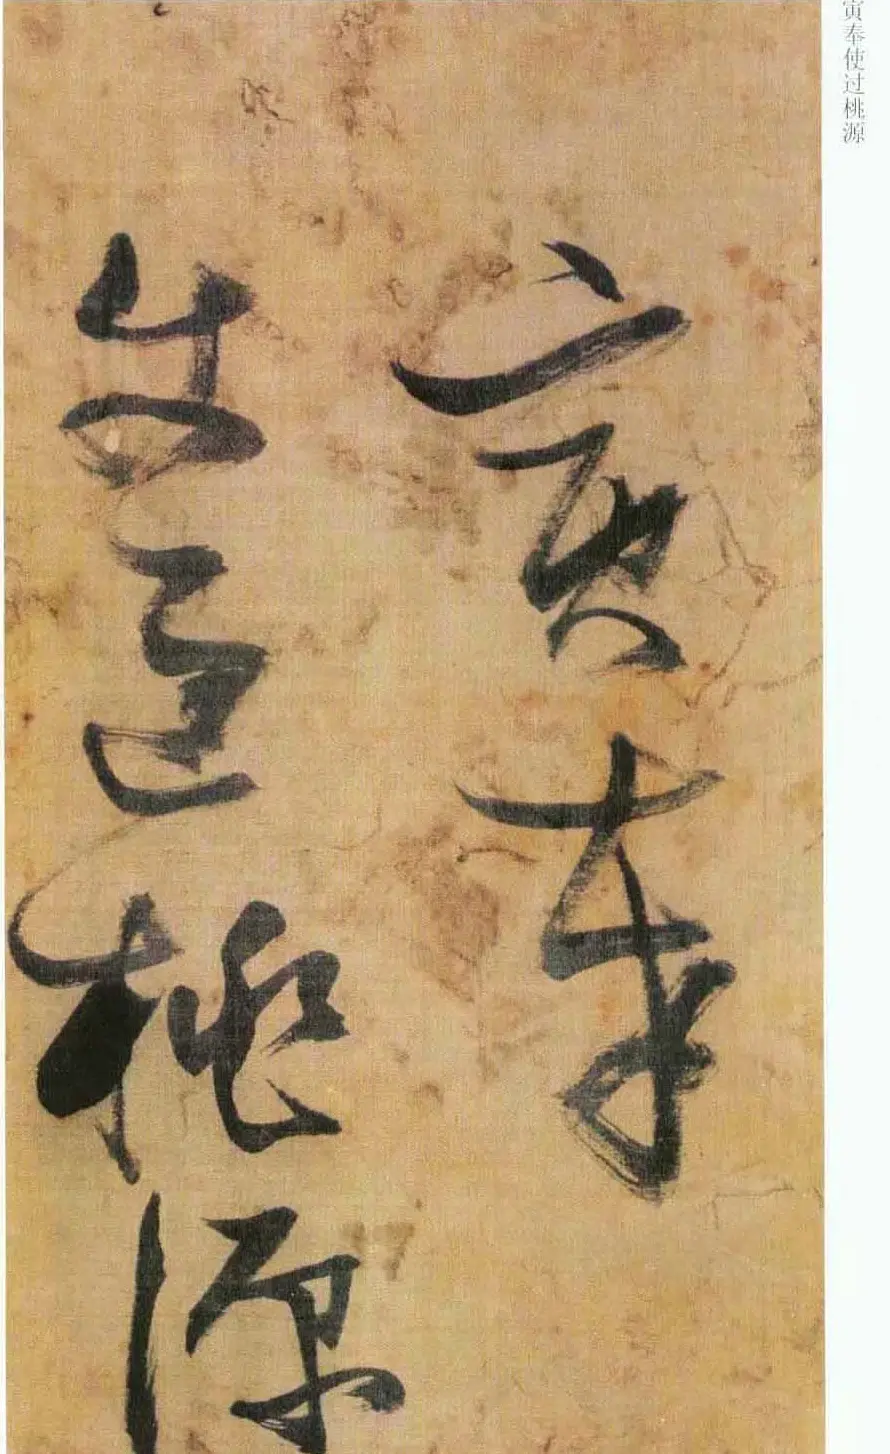 寅奉使过桃源
寅奉
使过桃源